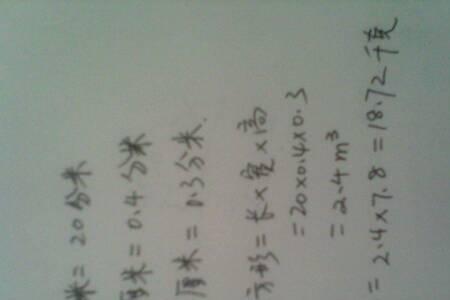 米 = 20分米
厘米 = 0.4分米
厘米 = 0.3分米.
方形 = 长×宽×高
= 20×0.4×0.3
= 2.4m³
= 2.4×7.8 = 18.72千克